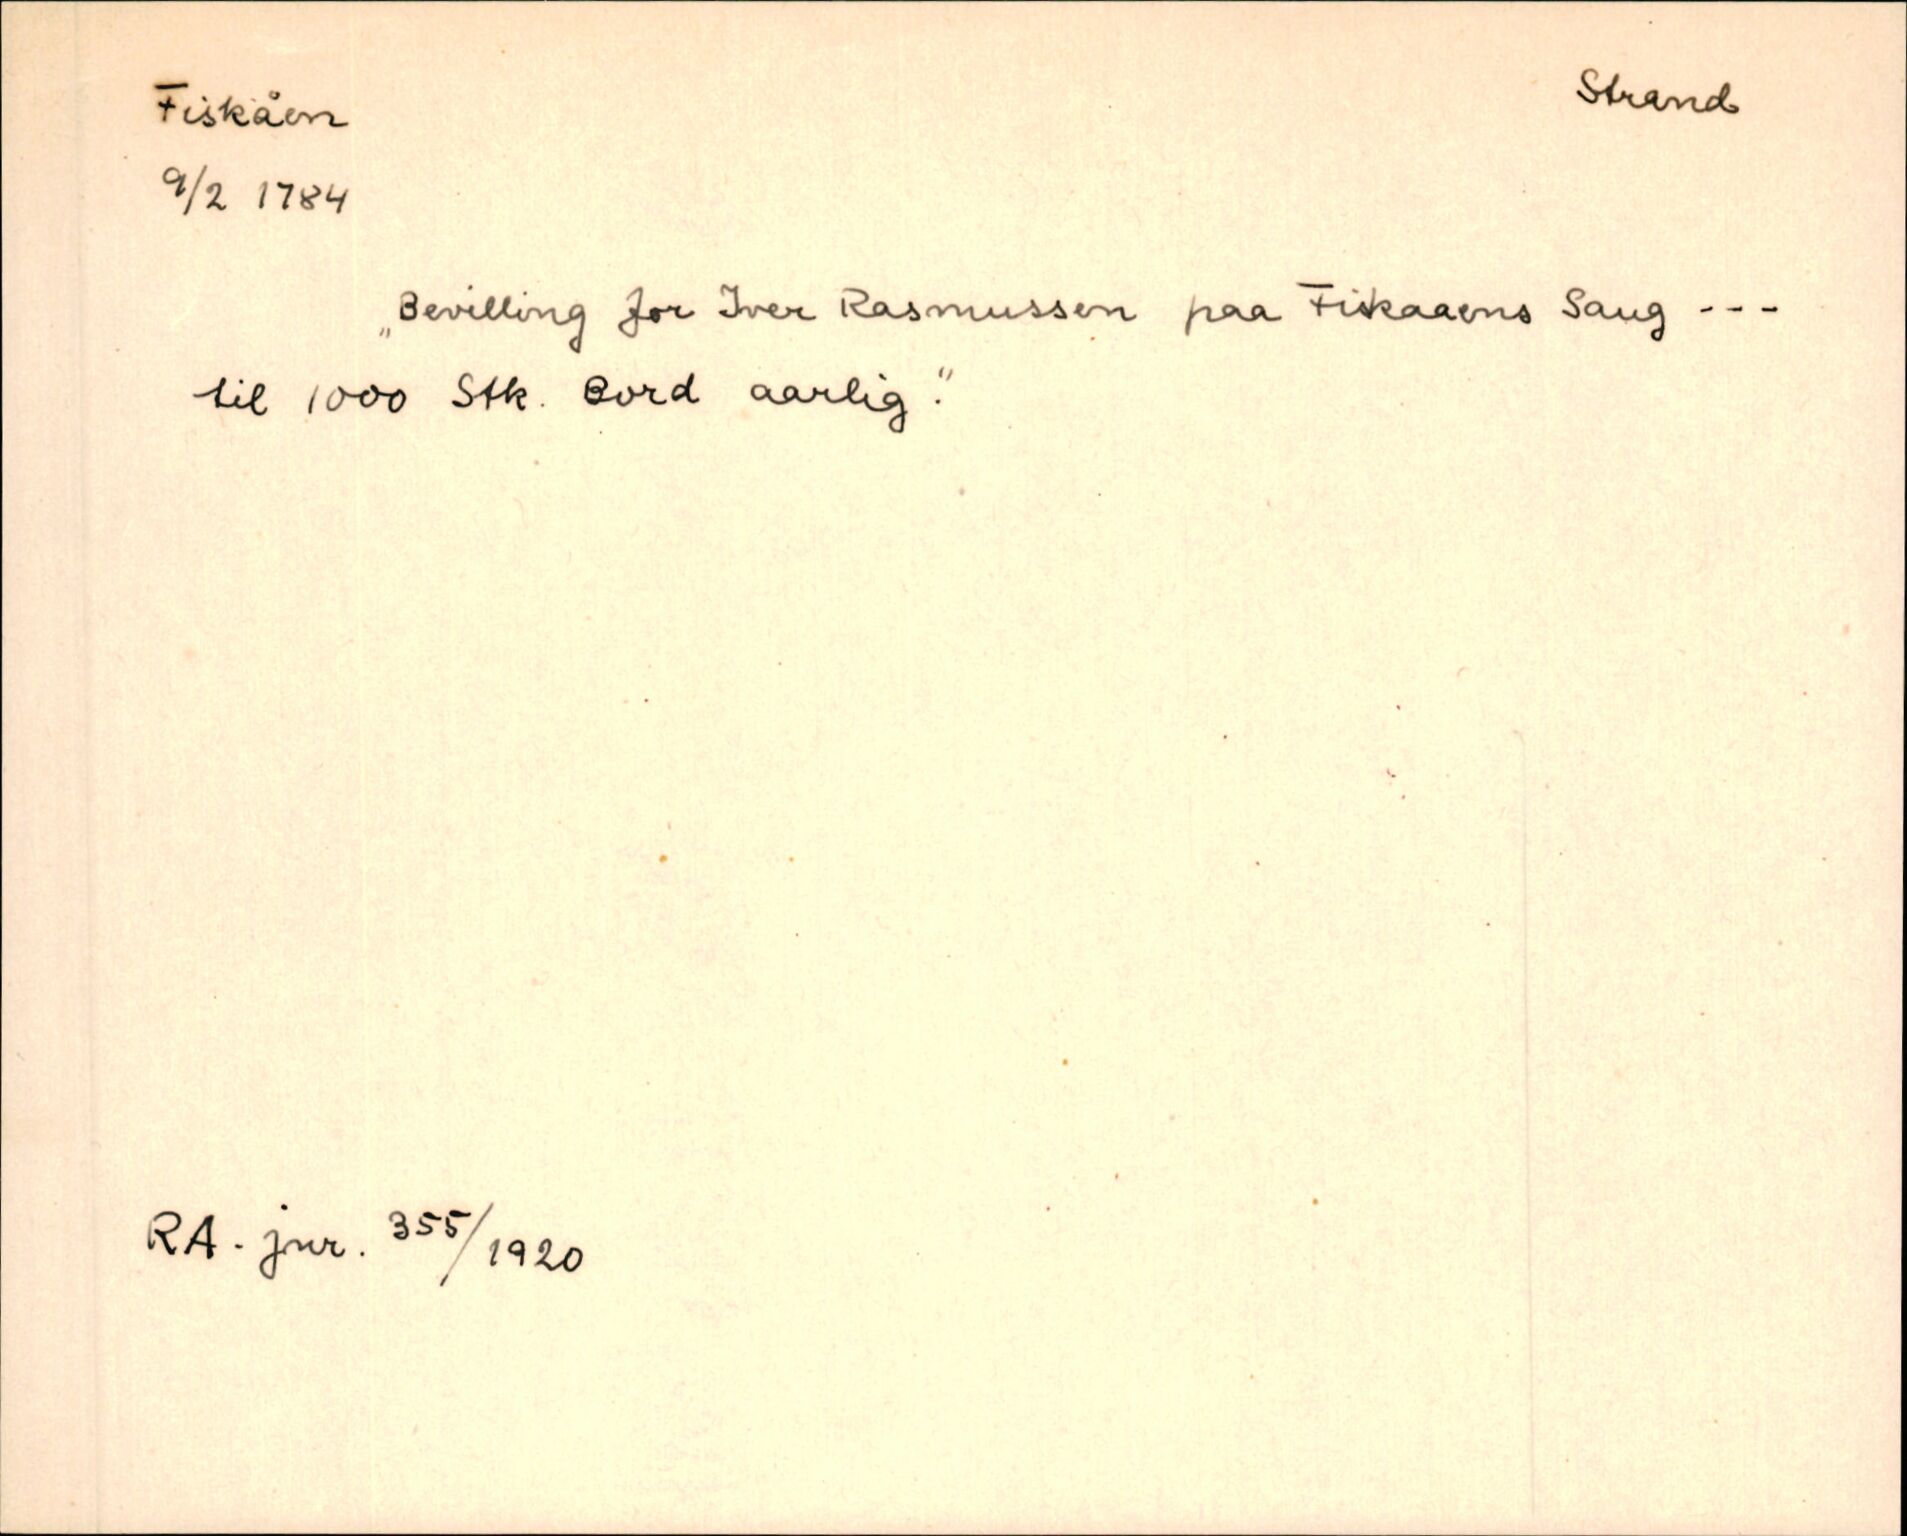 Fiskåen
Strand
9/2 1784
„Bevilling for Iver Rasmussen paa Fiskaaens Saug ---
til 1000 Stk. Bord aarlig."
RA. jnr. 355/1920